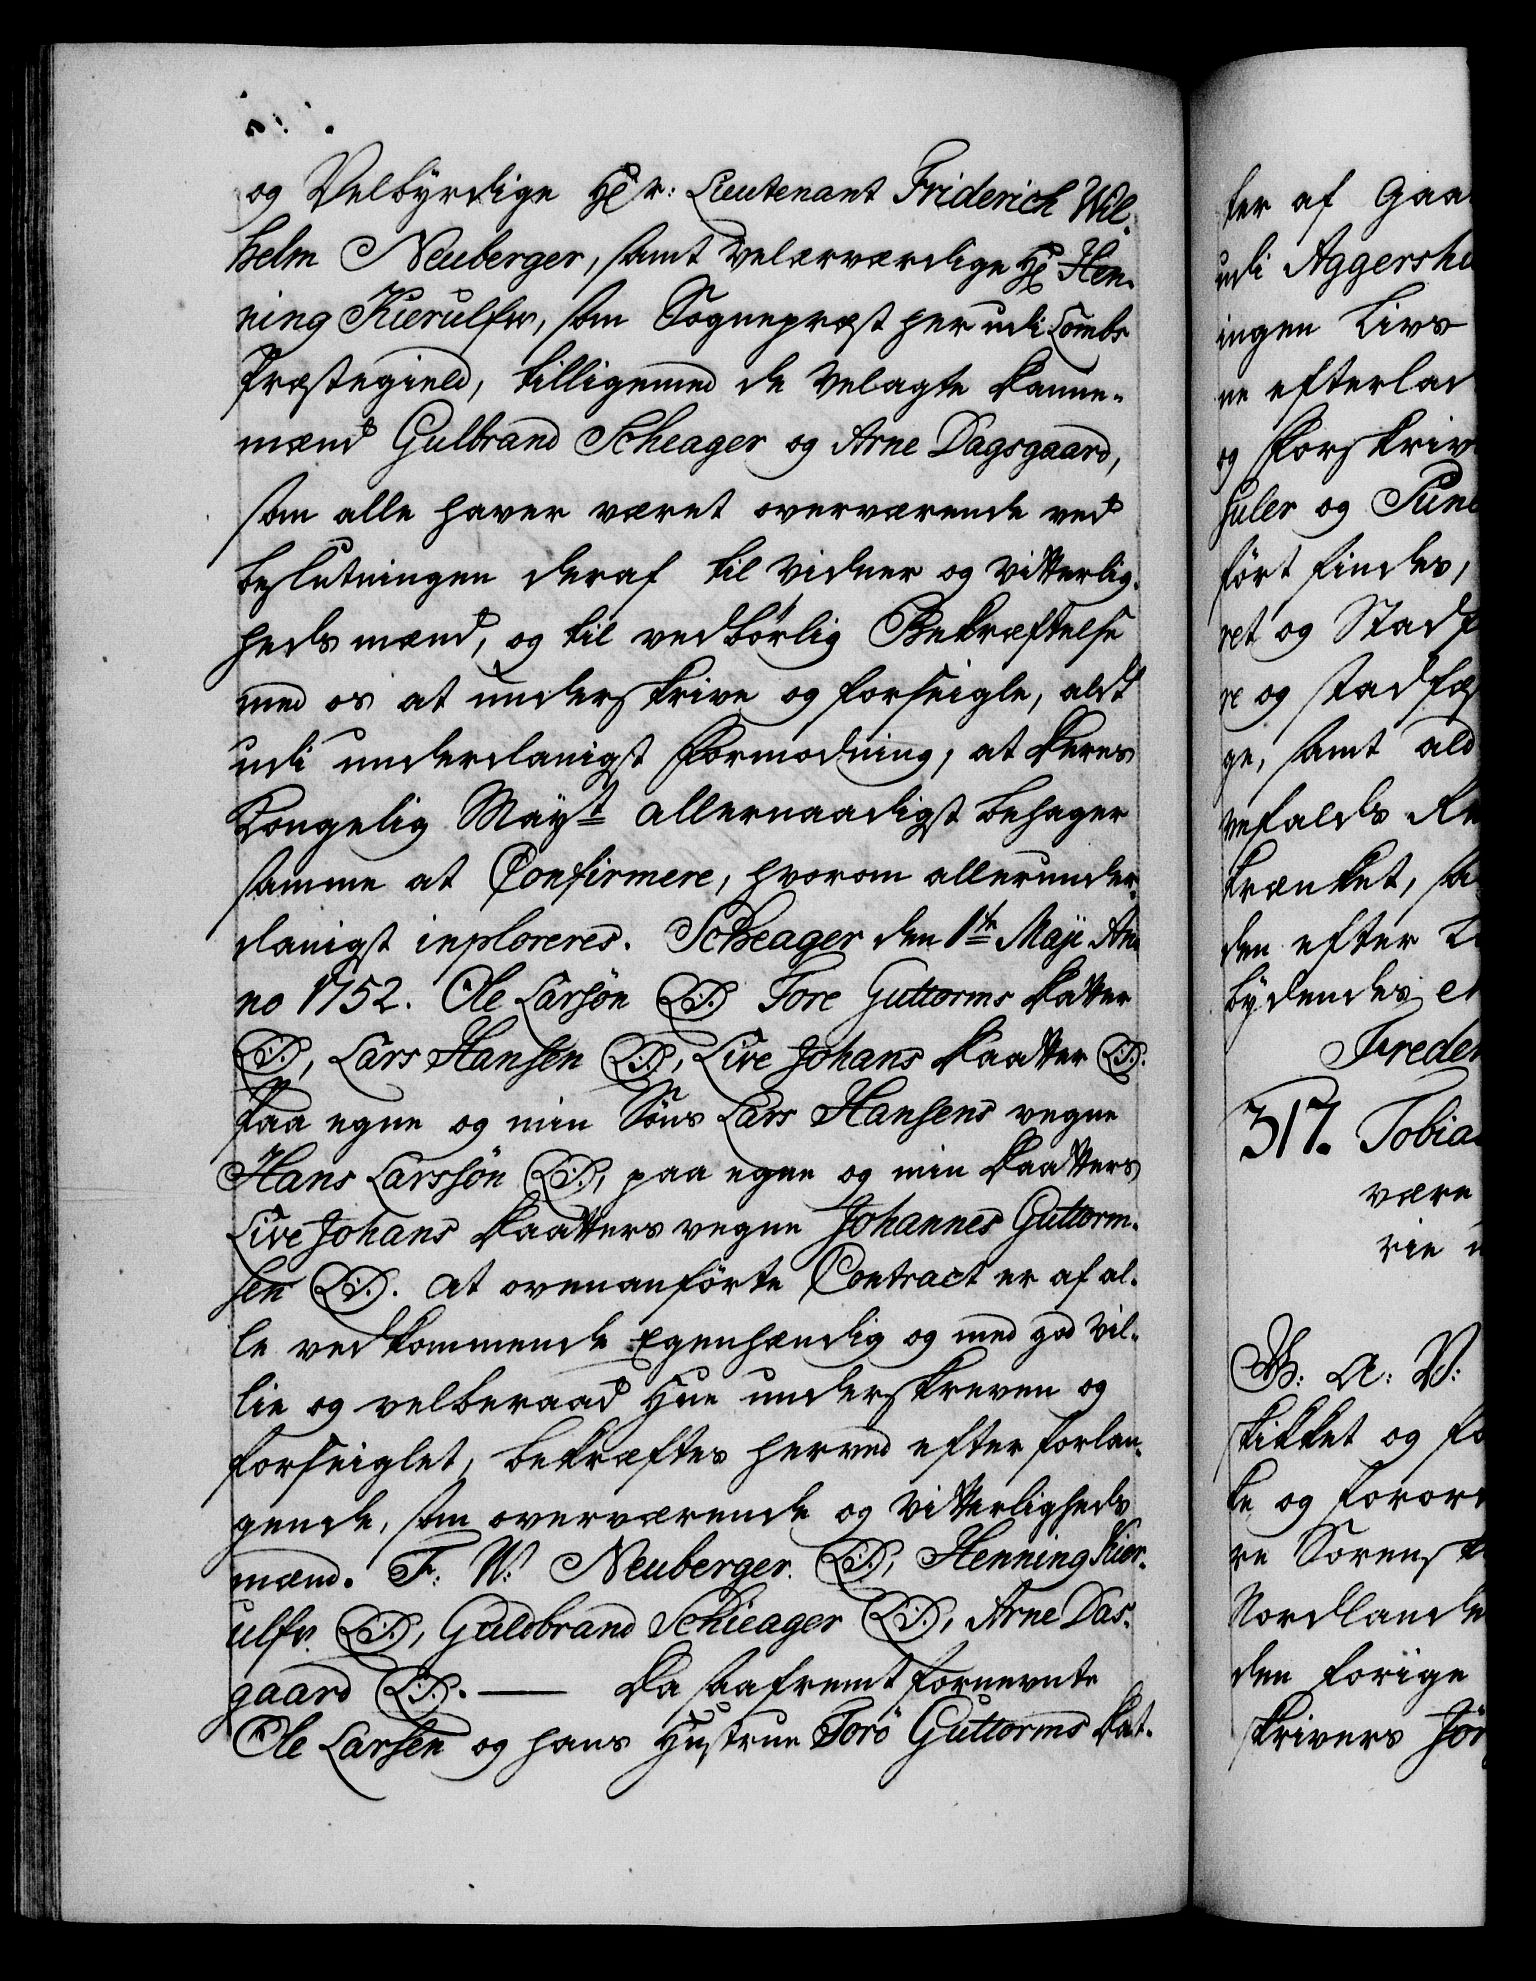 og Velbyrdige Hr: Lieutenant Friderich Wil-
helm Neuberger, samt Velærværdige Hr Hen-
ning Kierulfw, som Sognepræst her udi Lombs
Præstegield, tilligemed de Velagte Danne-
mænd Gulbrand Scheager og Arne Dagsgaard,
som alle haver været overværende ved
beslutningen deraf til vidner og vitterlig-
heds mænd, og til vedbørlig Bekræftelse
med os at underskrive og forseigle, aldt
udi underdanigst Formodning, at Deres
Kongelig Mayt allernaadigst behager
samme at Confirmere, hvorom allerunder-
danigst imploreres. Scheager den 1te Maji An-
no 1752. Ole Larsøn (L:S:) Tore Guttorms Datter
(L:S:), Lars Hansen (L:S:), Live Johans Daatter (L:S:)
Paa egne og min Søns Lars Hansens vegne
Hans Larssøn (L:S:), paa egne og min Daatters
Live Johans Daatters vegne Johannes Guttorm-
sen (L:S:). At ovenanførte Contract er af al-
le vedkommende Egenhændig og med god Vil-
lie og velberaad Hue underskreven og
forseiglet, bekræftes herved efter forlan-
gende, som overværende og Vitterligheds
mænd. F: W: Neuberger (L:S:), Henning Kier-
ulfw (L:S:), Guldbrand Schieager (L:S:), Arne Das-
gaard (L:S:). — Da saafremt fornevnte
Ole Larsen og hans Hustrue Torø Guttorms Dat-
ter af Gaa
udi Aggershu
ingen Livs
ne efterlad
og forskriv
huler og Pun
ført findes,
ret og Stadf
re og stadfæs
ge, samt ald
vefalds Re
krænket, sa
den efter L
bydendes et
Freder
317. Tobia
være
rie
G: A: V:
skikket og fo
te og foror
re Sorensk
Nordlande
den forige
skrivers Jør